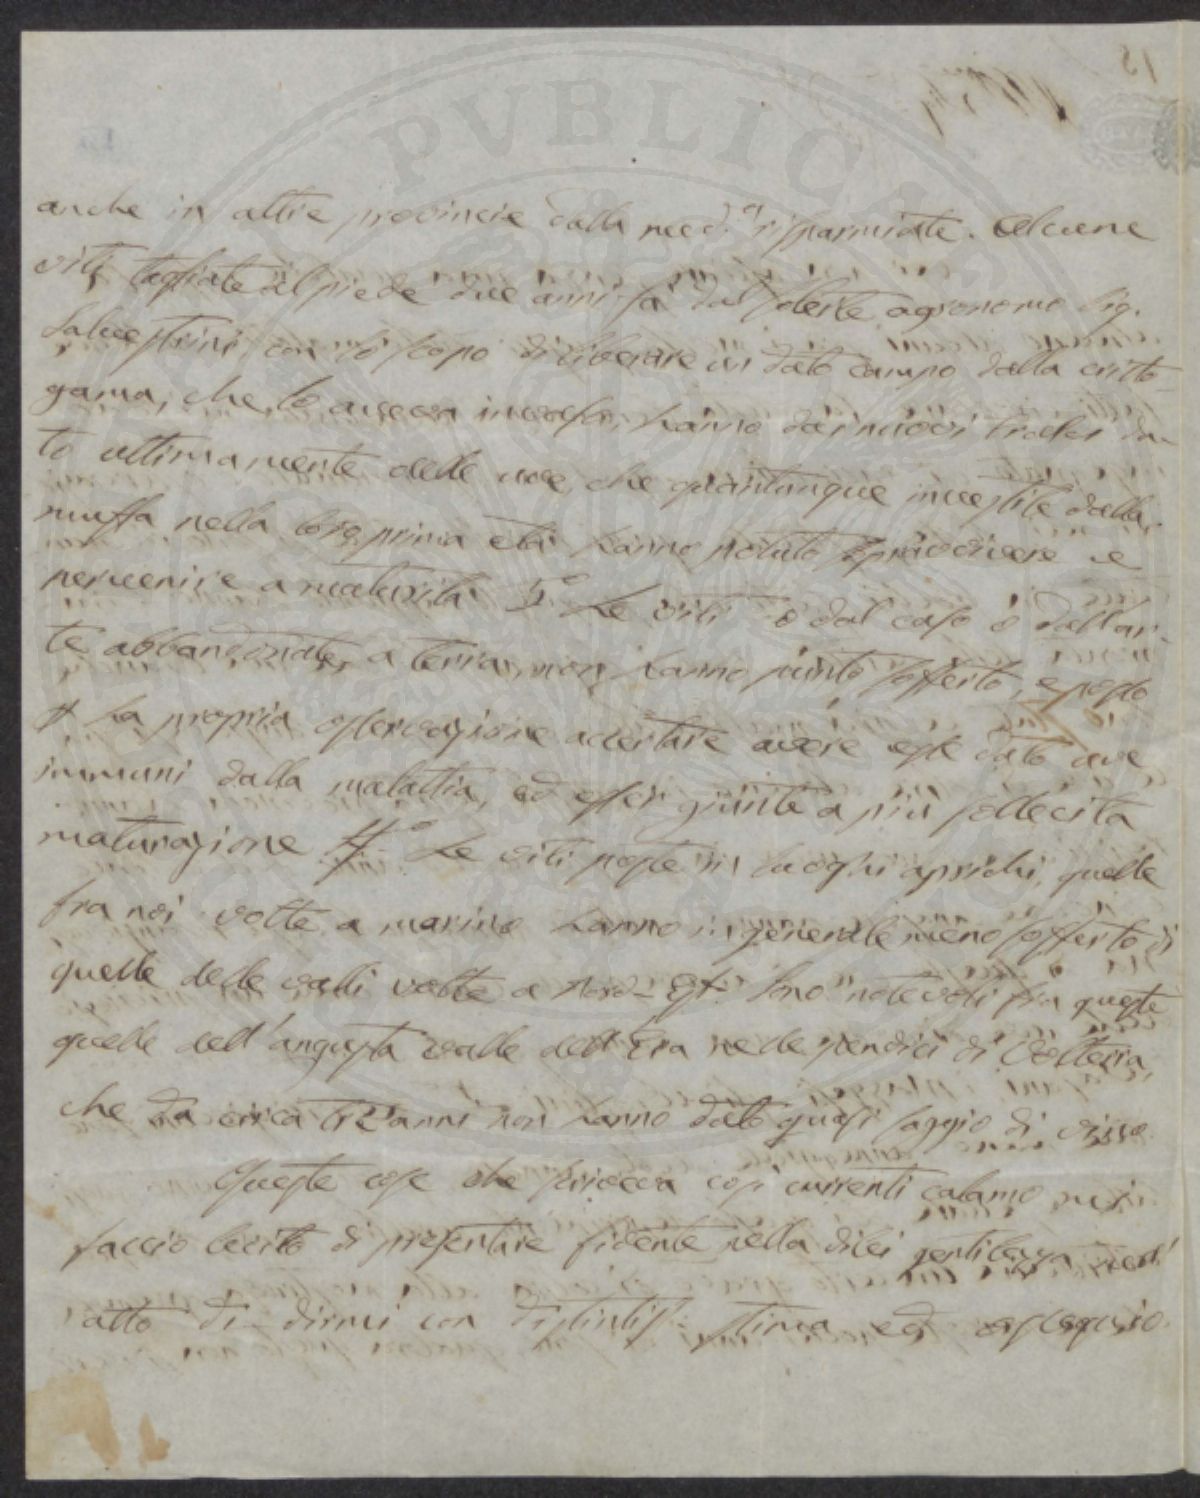 PVBLICA
anche in altre provincie dalla med.ª risparmiate. Alcune
viti tagliate al piede due anni fa dal solerte agronomo Sig.
Salvestrini con lo scopo di liberare un dato campo dalla critto-
gama, che le aveva invase, hanno dai nuovi tralci da-
to ultimamente delle uve, che quantunque investite dalla
muffa nella loro prima età hanno potuto sopravvivere e
pervenire a maturità 3.º Le viti o dal caso o dall'ar-
te abbandonate a terra, non hanno punto sofferto, e posso
la propria osservazione accertare avere esse dato uve
immuni dalla malattia, ed esser giunte a più sollecita
maturazione 4.º Le viti poste in luoghi aprichi, quelle
fra noi volte a marino hanno in generale meno sofferto di
quelle delle valli volte a Nord-Est. Sono notevoli fra queste
quelle dell'angusta valle dell'Era nelle pendici di Volterra,
che da circa tre anni non hanno dato quasi saggio di vino.
Queste cose che scriveva così currenti calamo mi
faccio lecito di presentare fidente nella di lei gentilezza nell'
atto di dirmi con distintis.ª stima ed ossequio.